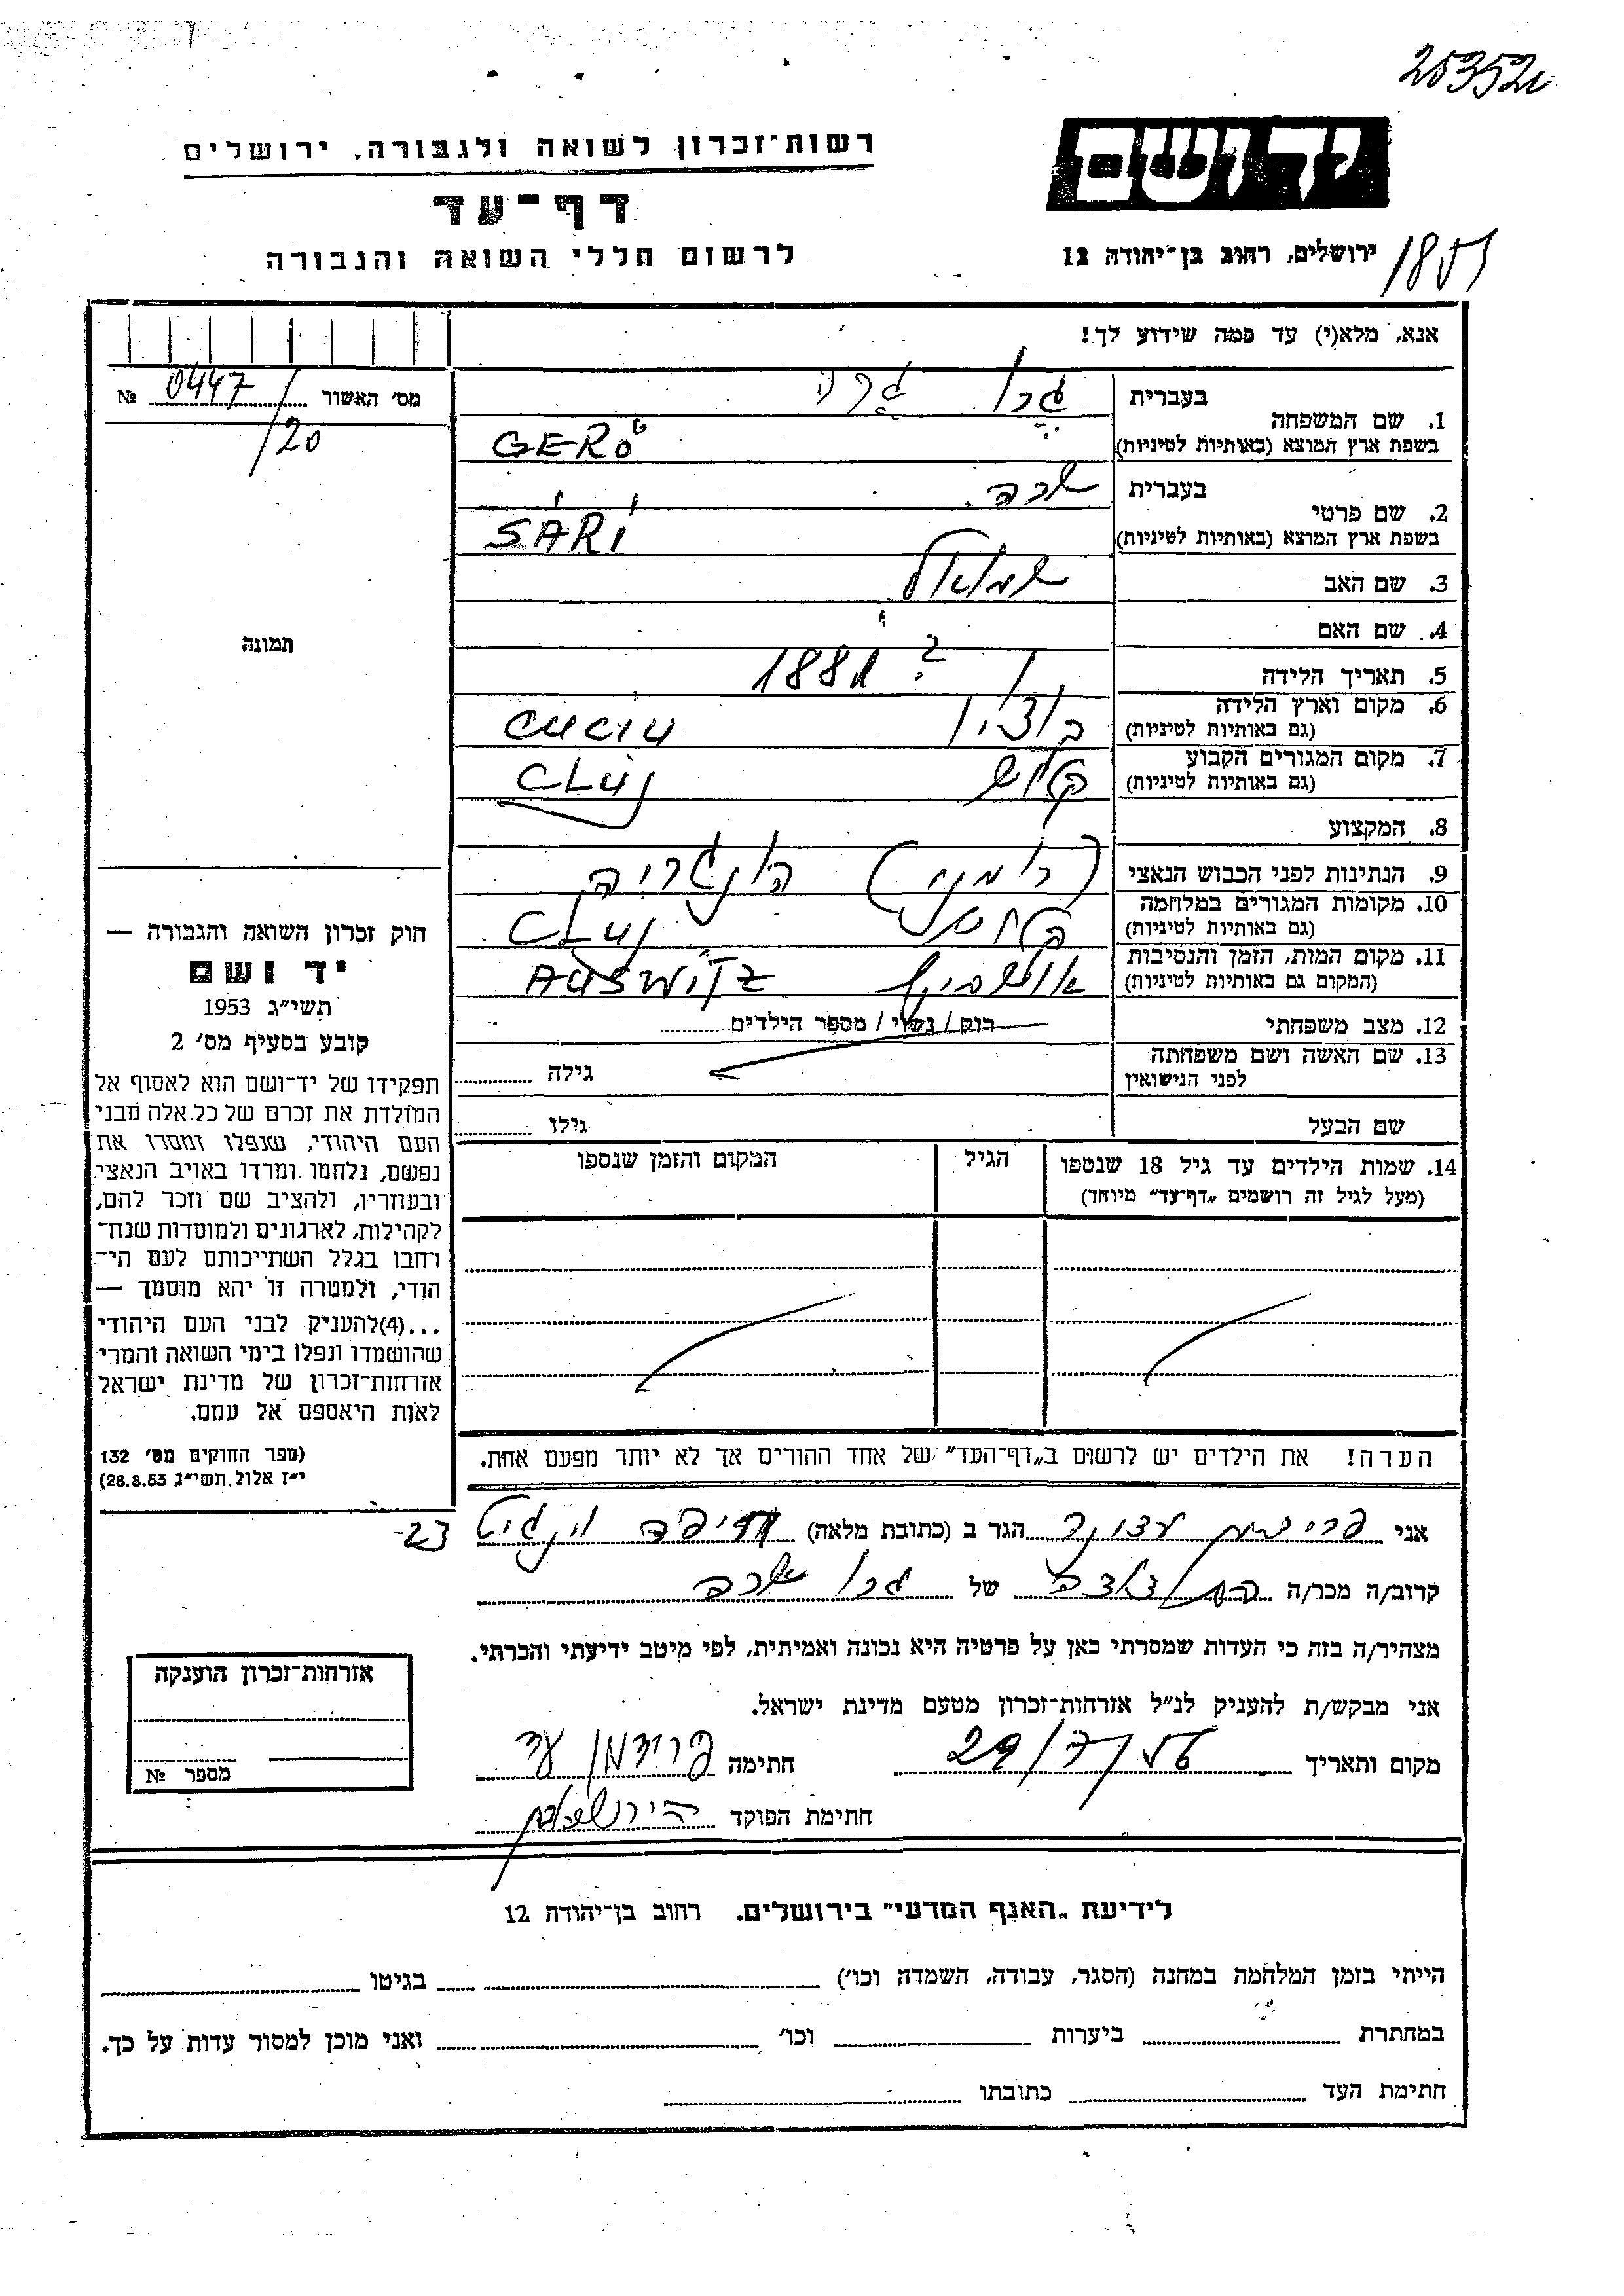 253522
רשות־זכרון לשואה ולגבורה, ירושלים
יד ושם
דף־עד
לרשום חללי השואה והגבורה
ירושלים, רחוב בן־יהודה 12
אנא, מלא(י) עד כמה שידוע לך!
מס׳ האשור 0447 №
/20
1. שם המשפחה
בעברית גרו
בשפת ארץ המוצא (באותיות לטיניות) GERÖ
2. שם פרטי
בעברית שרה
בשפת ארץ המוצא (באותיות לטיניות) SÁRI
3. שם האב שמואל
4. שם האם
5. תאריך הלידה 1881 ?
6. מקום וארץ הלידה
(גם באותיות לטיניות) CUCIU
7. מקום המגורים הקבוע
(גם באותיות לטיניות) קלוש CLUJ
8. המקצוע
9. הנתינות לפני הכבוש הנאצי (רומני) הונגריה
10. מקומות המגורים במלחמה
(גם באותיות לטיניות) CLUJ
11. מקום המות, הזמן והנסיבות
(המקום גם באותיות לטיניות) AUSWITZ
12. מצב משפחתי רוק / נשוי / מספר הילדים
13. שם האשה ושם משפחתה
לפני הנישואין גילה
שם הבעל גילו
14. שמות הילדים עד גיל 18 שנספו הגיל המקום והזמן שנספו
(מעל לגיל זה רושמים „דף־עד״ מיוחד)
הערה! את הילדים יש לרשום ב„דף־העד״ של אחד ההורים אך לא יותר מפעם אחת.
תמונה
חוק זכרון השואה והגבורה —
יד ושם
תשי״ג 1953
קובע בסעיף מס׳ 2
תפקידו של יד־ושם הוא לאסוף אל
המולדת את זכרם של כל אלה מבני
העם היהודי, שנפלו ומסרו את
נפשם, נלחמו ומרדו באויב הנאצי
ובעוזריו, ולהציב שם וזכר להם,
לקהילות, לארגונים ולמוסדות שנח־
רבו בגלל השתייכותם לעם הי־
הודי, ולמטרה זו יהא מוסמך —
...(4)להעניק לבני העם היהודי
שהושמדו ונפלו בימי השואה והמרי
אזרחות־זכרון של מדינת ישראל
לאות היאספם אל עמם.
(ספר החוקים מס׳ 132
י״ז אלול תשי״ג 28.8.53)
אני הגר ב (כתובת מלאה) חיפה 23
קרוב/ה מכר/ה של גרו שרה
מצהיר/ה בזה כי העדות שמסרתי כאן על פרטיה היא נכונה ואמיתית, לפי מיטב ידיעתי והכרתי.
אני מבקש/ת להעניק לנ״ל אזרחות־זכרון מטעם מדינת ישראל.
מקום ותאריך 29/ חתימה פרידמן
חתימת הפוקד
אזרחות־זכרון הוענקה
מספר №
לידיעת „האגף המדעי״ בירושלים. רחוב בן־יהודה 12
הייתי בזמן המלחמה במחנה (הסגר, עבודה, השמדה וכו׳) בגיטו
במחתרת ביערות וכו׳ ואני מוכן למסור עדות על כך.
חתימת העד כתובתו